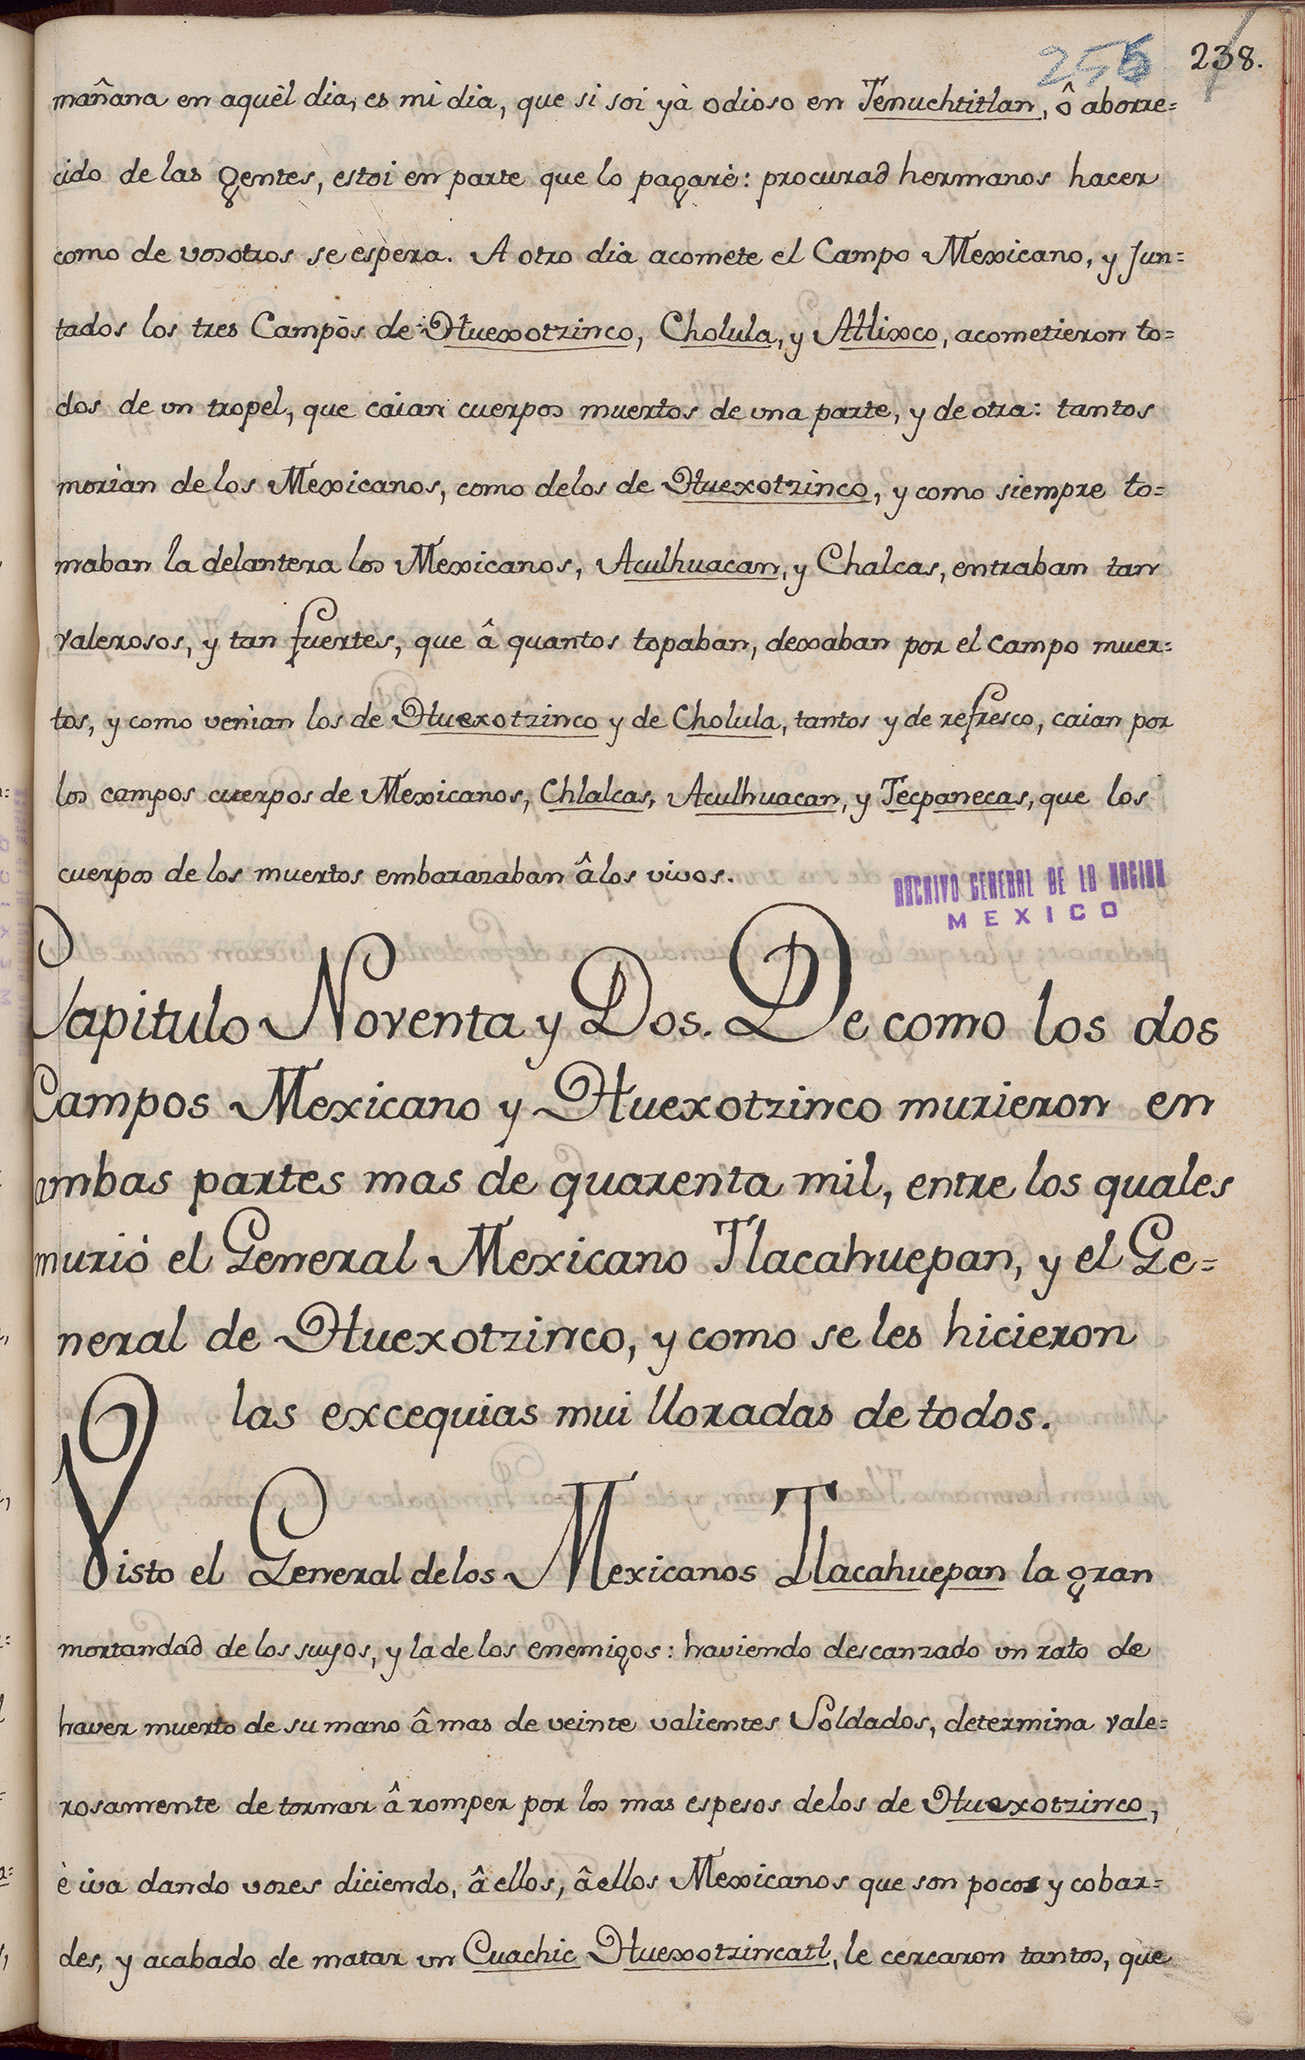 256 238.
mañana en aquèl dia, es mi dia, que si soi yà odioso en Tenuchtitlan, ô aborre=
cido de las gentes, estoi en parte que lo pagarè: procurad hermanos hacer
como de vosotros se espera. A otro dia acomete el Campo Mexicano, y Jun=
tados los tres Campos de Huexotzinco, Cholula, y Atlixco, acometieron to=
dos de un tropel, que caian cuerpos muertos de una parte, y de otra: tantos
morian de los Mexicanos, como delos de Huexotzinco, y como siempre to=
maban la delantera los Mexicanos, Aculhuacan, y Chalcas, entraban tan
valerosos, y tan fuertes, que â quantos topaban, dexaban por el campo muer=
tos, y como venian los de Huexotzinco y de Cholula, tantos y de refresco, caian por
los campos cuerpos de Mexicanos, Chlalcas, Aculhuacan, y Tecpanecas, que los
cuerpos de los muertos embarazaban â los vivos.
ARCHIVO GENERAL DE LA NACION
MEXICO
Capitulo Noventa y Dos. De como los dos
Campos Mexicano y Huexotzinco murieron en
ambas partes mas de quarenta mil, entre los quales
murió el General Mexicano Tlacahuepan, y el Ge=
neral de Huexotzinco, y como se les hicieron
las excequias mui lloradas de todos.
Visto el General delos Mexicanos Tlacahuepan la gran
mortandad de los suyos, y la de los enemigos: haviendo descanzado un rato de
haver muerto de su mano â mas de veinte valientes Soldados, determina vale=
rosamente de tornar â romper por los mas espesos delos de Huexotzinco,
è iva dando vozes diciendo, â ellos, â ellos Mexicanos que son pocos y cobar=
des, y acabado de matar un Cuachic Huexotzincatl, le cercaron tantos, que